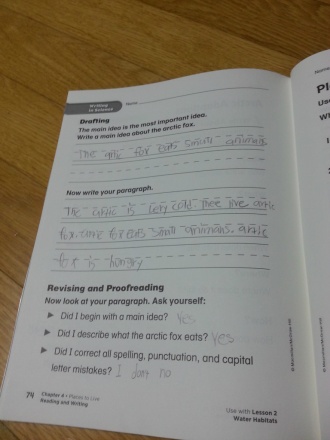 Writing
in Science
Name
Drafting
The main idea is the most important idea.
Write a main idea about the arctic fox.
The artic fox eats small animals
Now write your paragraph.
The artic is very cold there live arctic
fox. artic fox eats small animans. arctic
fox is hungry
Revising and Proofreading
Now look at your paragraph. Ask yourself:
▶ Did I begin with a main idea? Yes
▶ Did I describe what the arctic fox eats? Yes
▶ Did I correct all spelling, punctuation, and capital
letter mistakes? I dong no
74 Chapter 4 • Places to Live
Reading and Writing
Use with Lesson 2
Water Habitats
Name
Pl
Us